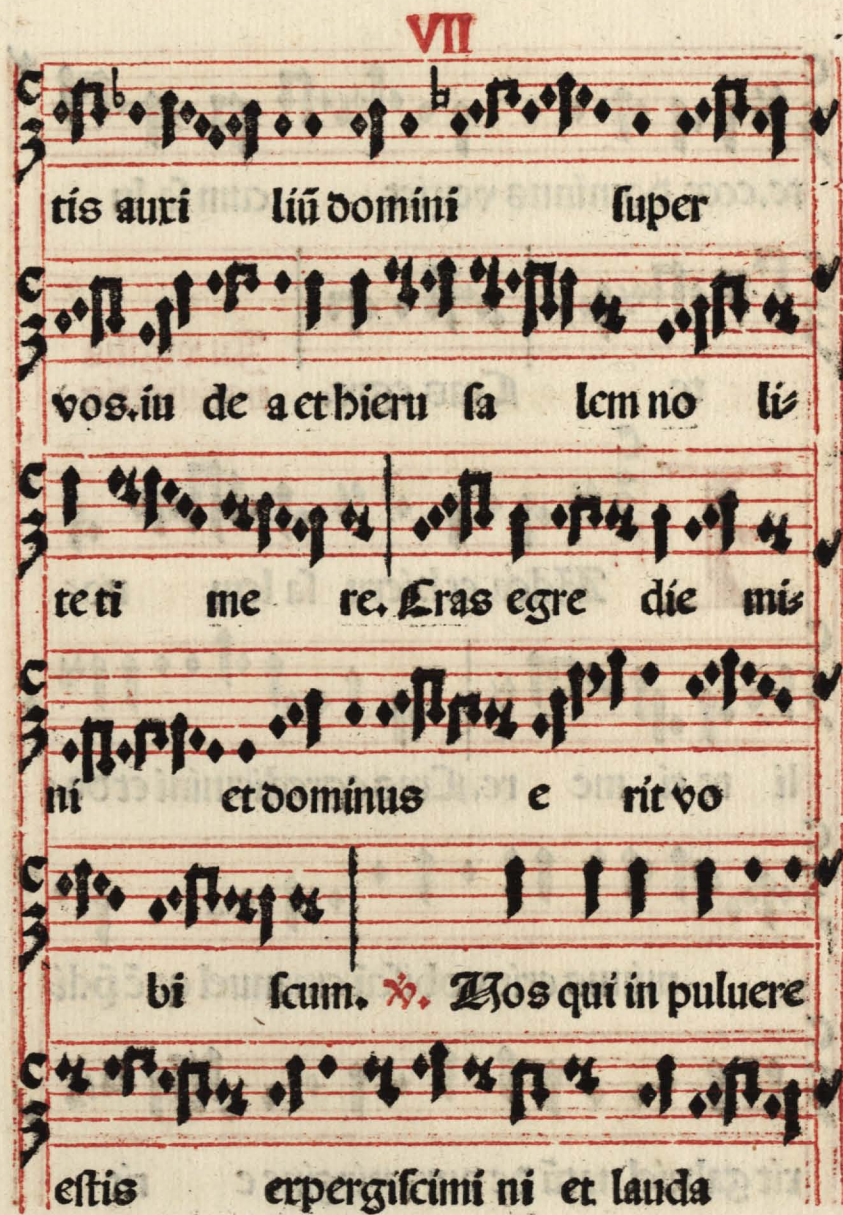 VII
tis auxi liū domini super
vos. iu de a et hieru sa lem no li⸗
te ti me re. Cras egre die mi⸗
ni et dominus e rit vo
bi scum. ℣. Vos qui in puluere
estis expergiscimi ni et lauda